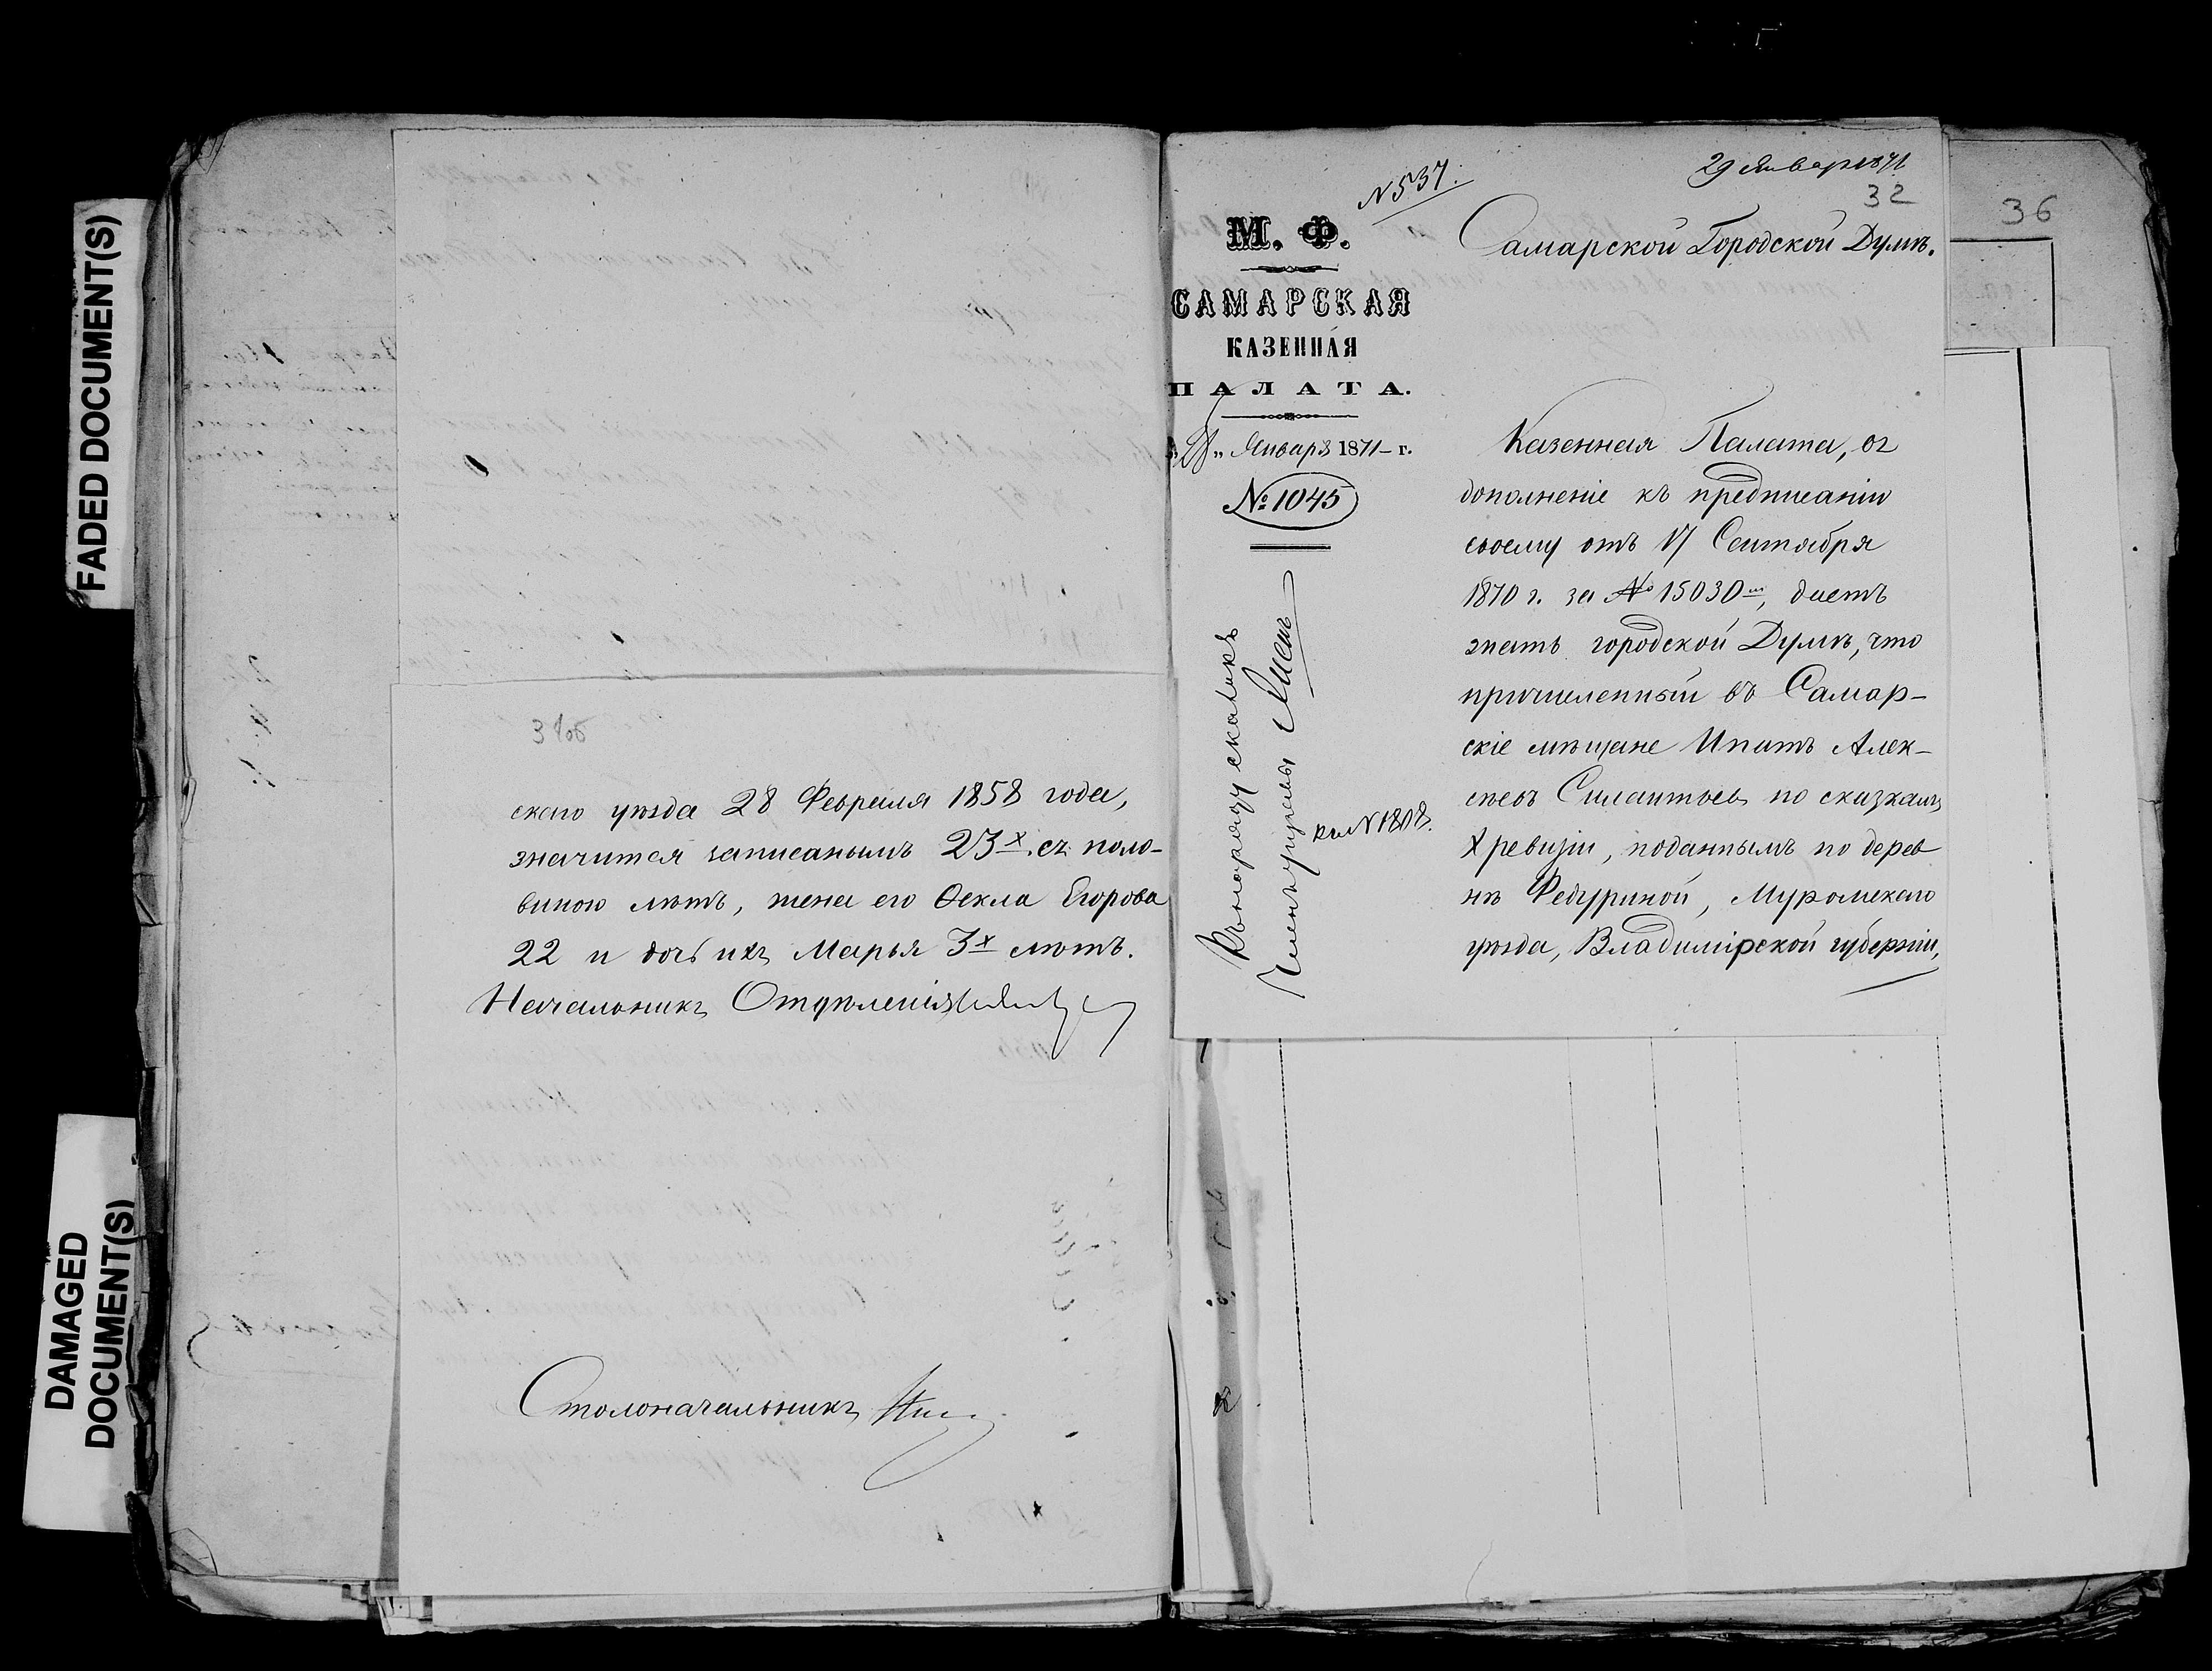 FADED DOCUMENT(S)
DAMAGED
DOCUMENT(S)
31об
скаго уѣзда 28 Февраля 1858 года,
значится записанымъ 23х съ поло-
виною лѣтъ, жена его Ѳекла Егорова
22 и дочь ихъ Марья 3х лѣтъ.
Начальникъ Отдѣленія
Столоначальникъ
№ 537.
29 Января 1871
32
36
М. Ф.
САМАРСКАЯ
КАЗЕННАЯ
ПАЛАТА.
Января 1871 г.
№ 1045
Самарской Городской Думѣ.
Казенная Палата, въ
дополненіе къ предписанію
своему отъ 17 Сентября
1870 г. за № 15030м, даетъ
знать городской Думѣ, что
причисленный въ Самар-
скіе мѣщане Ипатъ Алек-
сѣевъ Силантьевъ по сказкамъ
X ревизіи, поданнымъ по дерев
нѣ Федуриной, Муромскаго
уѣзда, Владимірской губерніи,
№ 1808.